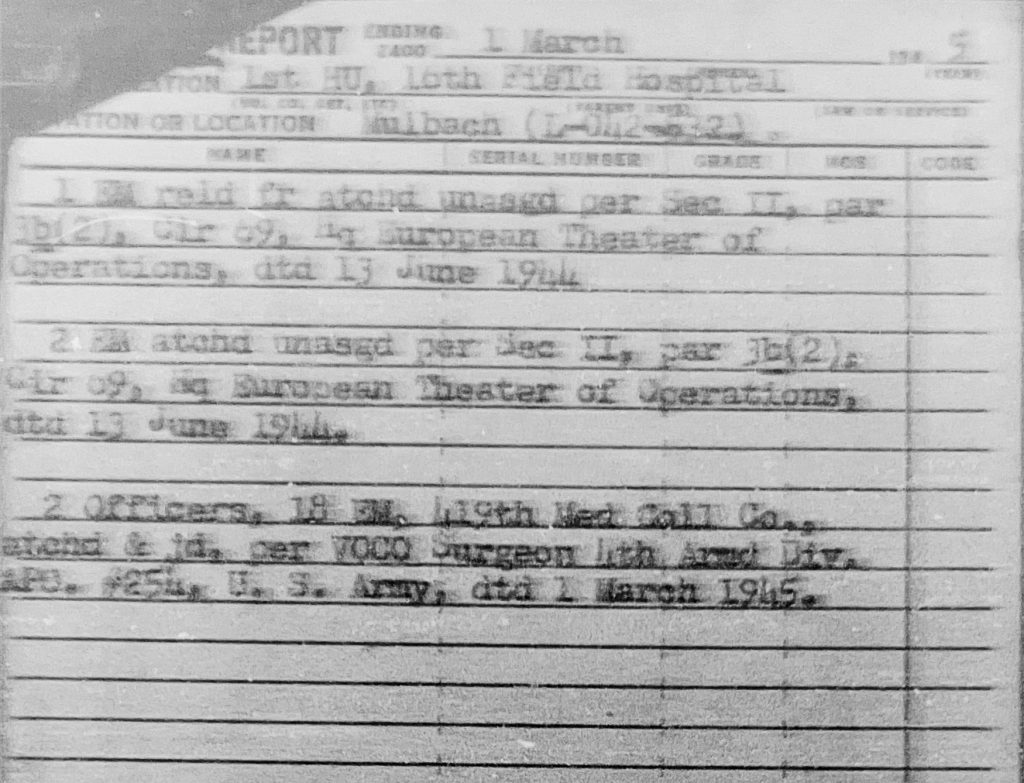 REPORT ENDING 2400 1 March 5
1st HU, 16th Field Hospital
STATION OR LOCATION Mulbach (L-042-632).
NAME SERIAL NUMBER GRADE MOS CODE
1 EM reld fr atchd unasgd per Sec II, par
3b(2), Cir 69, Hq European Theater of
Operations, dtd 13 June 1944
2 EM atchd unasgd per Sec II, par 3b(2),
Cir 69, Hq European Theater of Operations,
dtd 13 June 1944.
2 Officers, 18 EM, 419th Med Coll Co.,
atchd & jd. per VOCO Surgeon 4th Armd Div.
APO. #254, U. S. Army, dtd 1 March 1945.